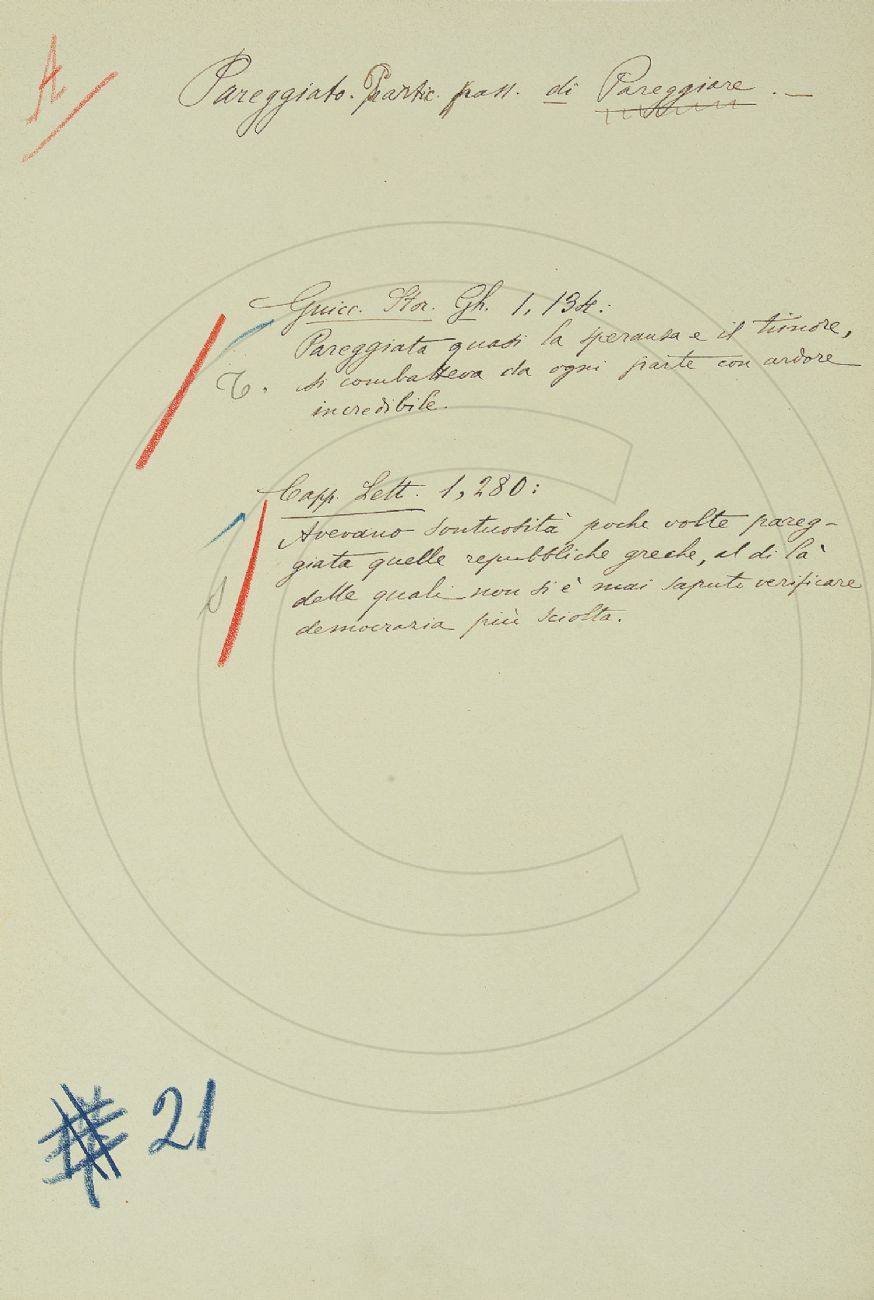 A
Pareggiato. Partic. pass. di Pareggiare. —
Guicc. Stor. Gh. 1, 134:
Pareggiata quasi la speransa e il timore,
T. si combatteva da ogni parte con ardore
incredibile.
Capp. Lett. 1, 280:
Avevano sontuosità poche volte pareg-
giata quelle repubbliche greche, al di là
S delle quali non si è mai saputo verificare
democrazia più sciolta.
21